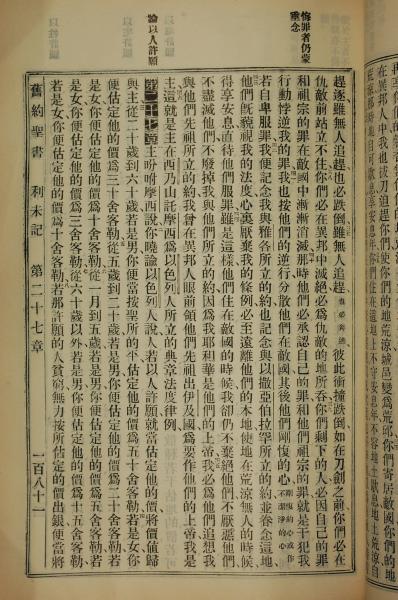 悔罪者仍蒙重念
趕逐雖無人追趕也必跌倒雖無人追趕也必奔逃彼此衝撞跌倒如在刀劍之前你們必在
仇敵前站立不住你們必在異邦中滅絕必爲仇敵的地所吞你們剩下的人必因自己的罪
和祖宗的罪在敵國中漸漸消滅那時他們必承認自己的罪和他們祖宗的罪就是干犯我
行動悖逆我的罪我也按他們的逆行分散他們在敵國其後他們剛愎的心剛愎的心或作不潔淨的心
若自卑服罪我便記念我與雅各所立的約也記念與以撒亞伯拉罕所立的約並眷念這地
他們既藐視我的法度心裏厭棄我的條例必至遠離他們的本地使地在荒涼無人的時候
得享安息直待他們服罪雖是這樣他們住在敵國的時候我卻仍不棄絕他們不厭惡他們
不盡滅他們不廢掉我與他們所立的約因爲我耶和華是他們的上帝我必爲他們追想我
與他們祖先所立的約我曾在異邦人眼前領他們先祖出伊及國爲要作他們的上帝我是
主這就是主在西乃山託摩西爲以色列人所立的典章法度律例
論以人許願
第二十七章主吩咐摩西說你曉諭以色列人說人若以人許願就當估定他的價值將價值歸
與主從二十歲到六十歲若是男你便當按聖所的平估定他的價爲五十舍客勒若是女你
便估定他的價爲三十舍客勒從五歲到二十歲若是男你便估定他的價爲二十舍客勒若
是女你便估定他的價爲十舍客勒從一月到五歲若是男你便估定他的價爲五舍客勒若
是女你便估定他的價爲三舍客勒從六十歲以外若是男你便估定他的價爲十五舍客勒
若是女你便估定他的價爲十舍客勒若那許願的人貧窮無力按所估定的價出銀便當將
舊約聖書 利未記 第二十七章 一百八十一